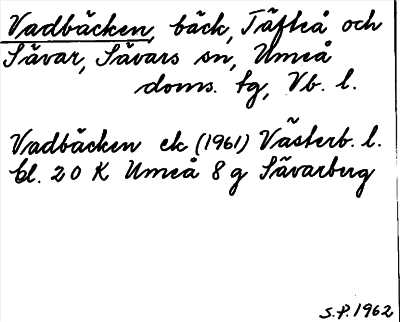 Vadbäcken, bäck, Täfteå och
Sävar, Sävars sn, Umeå
doms. tg, Vb. l.
Vadbäcken ek (1961) Västerb. l.
bl. 20 K Umeå 8 g Sävarberg
S.P. 1962